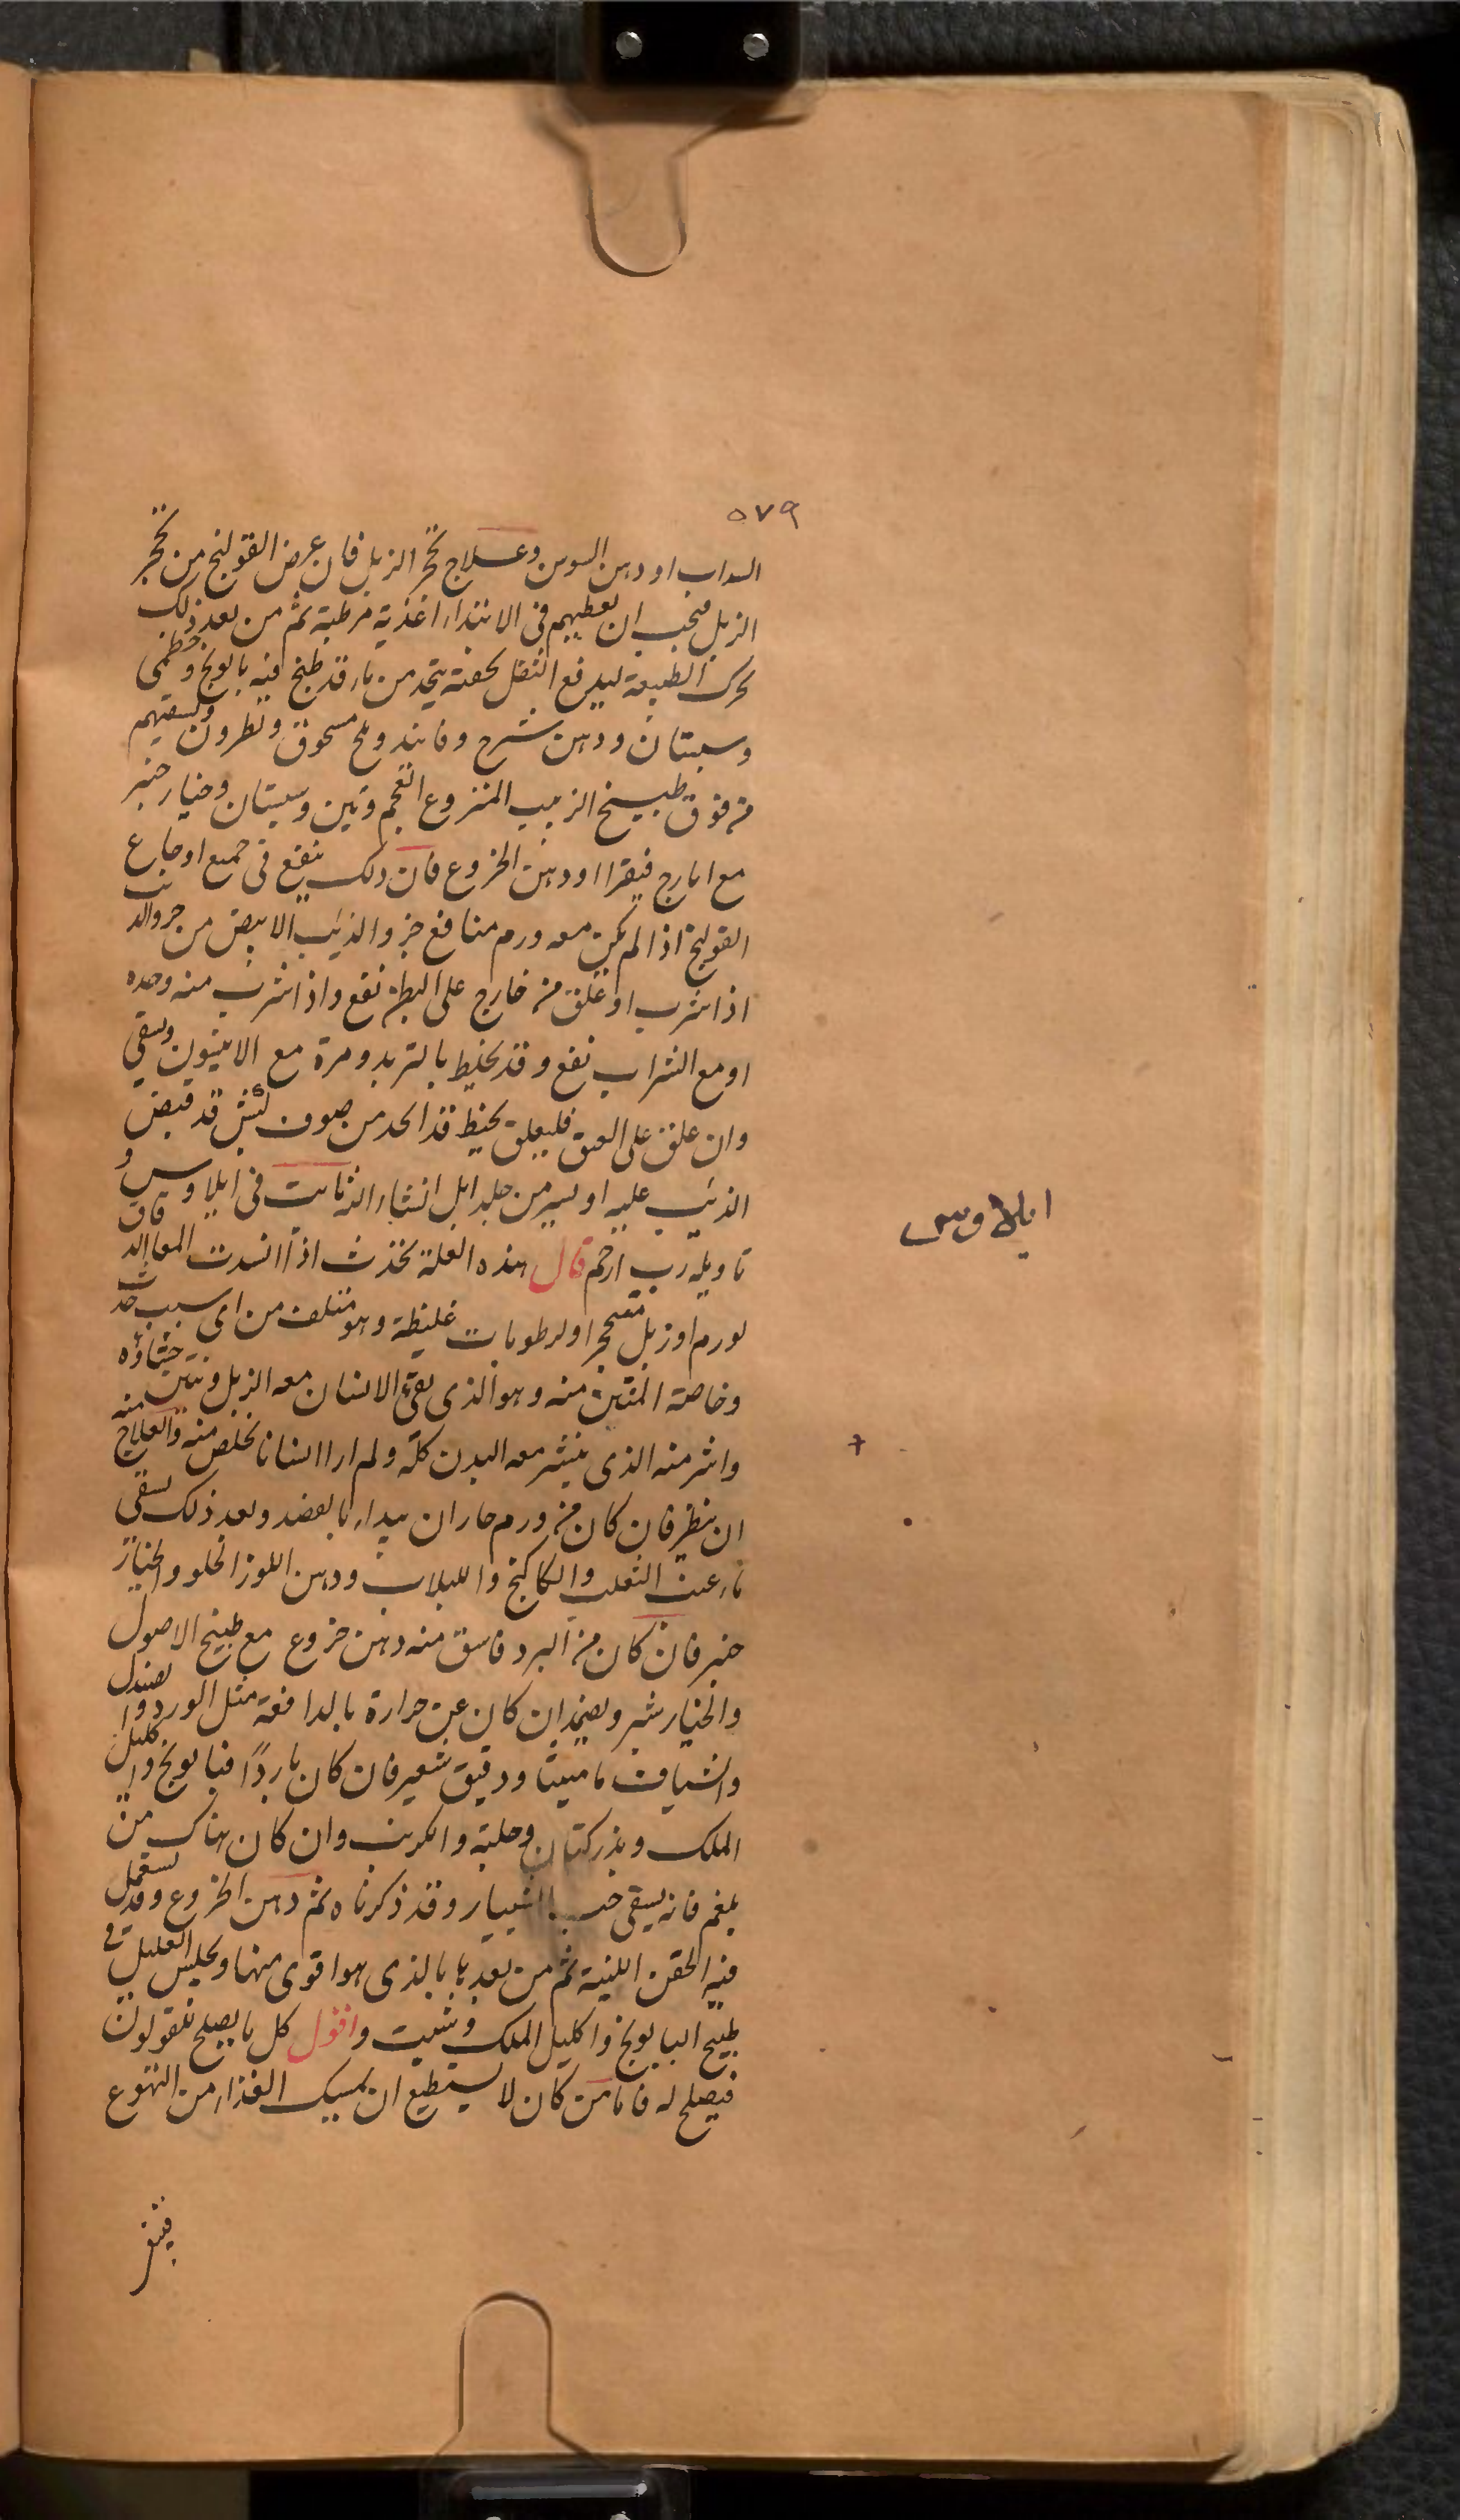 ٥٧٩
السداب او دهن السوسن وعلاج تحجر الزبل فان عرض القولنج من تحجر
الزبل فيجب ان نعطيهم فى الابتداء اغذية مرطبة ثم من بعد ذلك
نحرك الطبيعة ليدفع الثفل بحقنة يتخذ من ماء قد طبخ فيه بابونج وخطمى
وسبستان ودهن شيرج وفانيذ وملح مسحوق ونطرون ونسقيهم
من فوق طبيخ الزبيب المنزوع العجم وتين وسبستان وخيار شنبر
مع ايارج فيقرا او دهن الخروع فان ذلك ينفع فى جميع اوجاع
القولنج اذا لم يكن معه ورم منافع خرو الذئب الابيض من خرو الذئب
اذا شرب او علق من خارج على البطن نفع واذا شرب منه وحده
او مع الشراب نفع وقد يخلط بالتربد ومرة مع الانيسون ويسقى
وان علق على العنق فليعلق بخيط قد اتخذ من صوف كبش قد قبض
الذئب عليه او سير من جلد ايل انشاء الله ثابت فى ايلاوس و
تاويله رب ارحم قال هذه العلة تحدث اذا انسدت المعا الدقاق
لورم او زبل متحجر او لرطوبات غليظة وهو متلف من اى سبب حدث
وخاصة المنتن منه وهو الذى يقئ الانسان معه الزبل وينتن جشاؤه
واشر منه الذى ينتن معه البدن كله ولم ار انسانا تخلص منه والعلاج منه
ان ينظر فان كان من ورم حار ان يبداء بالفصد وبعد ذلك يسقى
ماء عنب الثعلب والكاكنج واللبلاب ودهن اللوز الحلو والخيار
شنبر فان كان من البرد فاسق منه دهن خروع مع طبيخ الاصول
والخيار شنبر ويضمد ان كان عن حرارة بالدافعة مثل الورد والصندل
والشياف ماميثا ودقيق شعير فان كان باردًا فبابونج واكليل
الملك وبذر كتان وحلبة والكرنب وان كان هناك من
بلغم فانه يسقى حب الشبيار وقد ذكرناه ثم دهن الخروع وقد يستعمل
فيه الحقن اللينة ثم من بعدها بالذى هو اقوى منها ويجلس العليل فى
طبيخ البابونج واكليل الملك وشبت واقول كل ما يصلح للقولون
فيصلح له فاما من كان لا يستطيع ان يمسك الغذاء من التهوع
ايلاوس